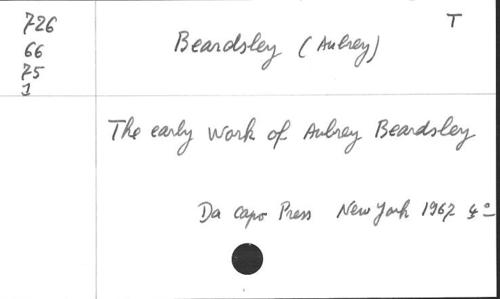 726
66
75
1
T
Beardsley (Aubrey)
The early work of Aubrey Beardsley
Da Capo Press New York 1967 4°